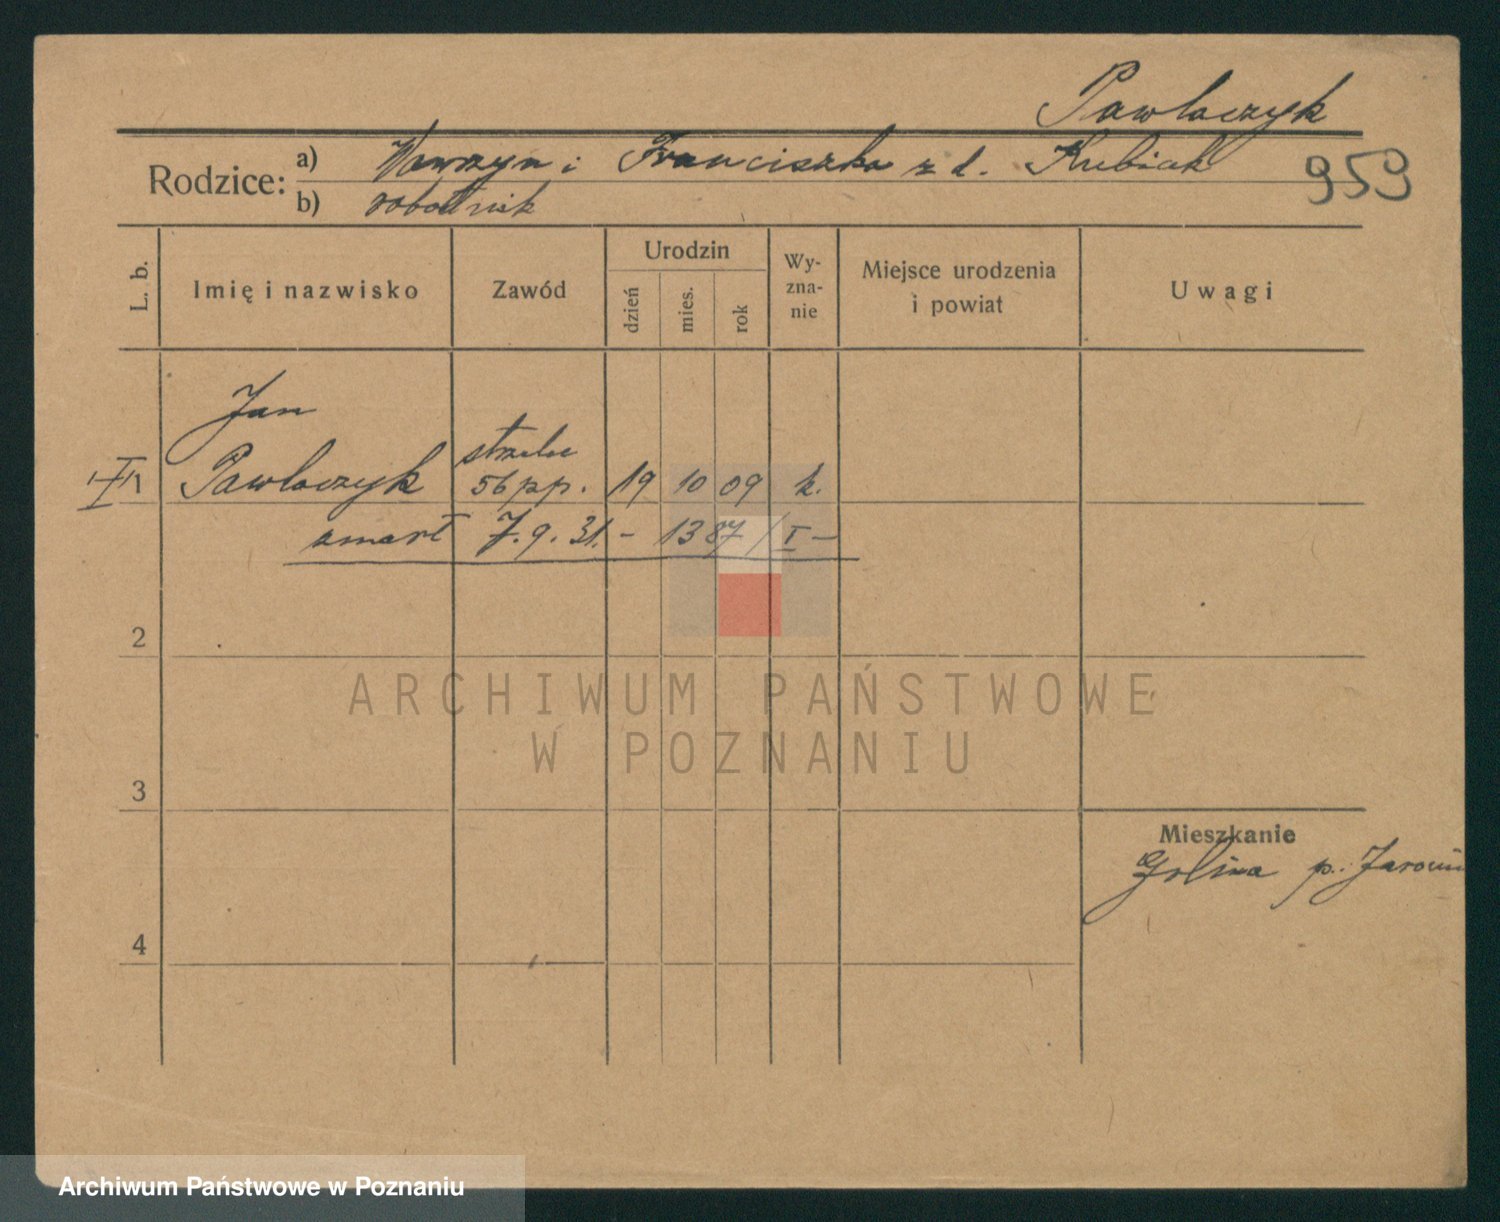 Pawlaczyk
Rodzice: a) Wawrzyn i Franciszka z d. Kubiak
959
b) robotnik
L. b.
Imię i nazwisko
Zawód
Urodzin
dzień
mies.
rok
Wy-
zna-
nie
Miejsce urodzenia
i powiat
Uwagi
Jan
Pawlaczyk
56 pp. 19 10 09 k.
zmarł 7.9.31. – 1387/I –
2
ARCHIWUM PAŃSTWOWE
W POZNANIU
3
Mieszkanie
Golina p. Jarocin
4
Archiwum Państwowe w Poznaniu